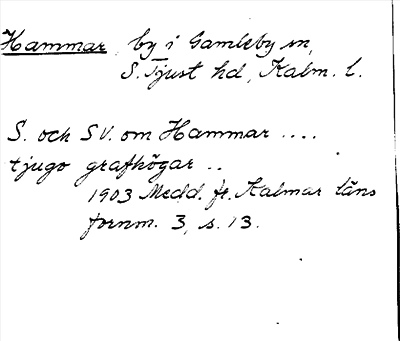 Hammar, by i Gamleby sn,
S. Tjust hd, Kalm. l.
S. och SV. om Hammar ....
tjugo grafhögar ..
1903 Medd. fr. Kalmar läns
fornm. 3, s. 13.